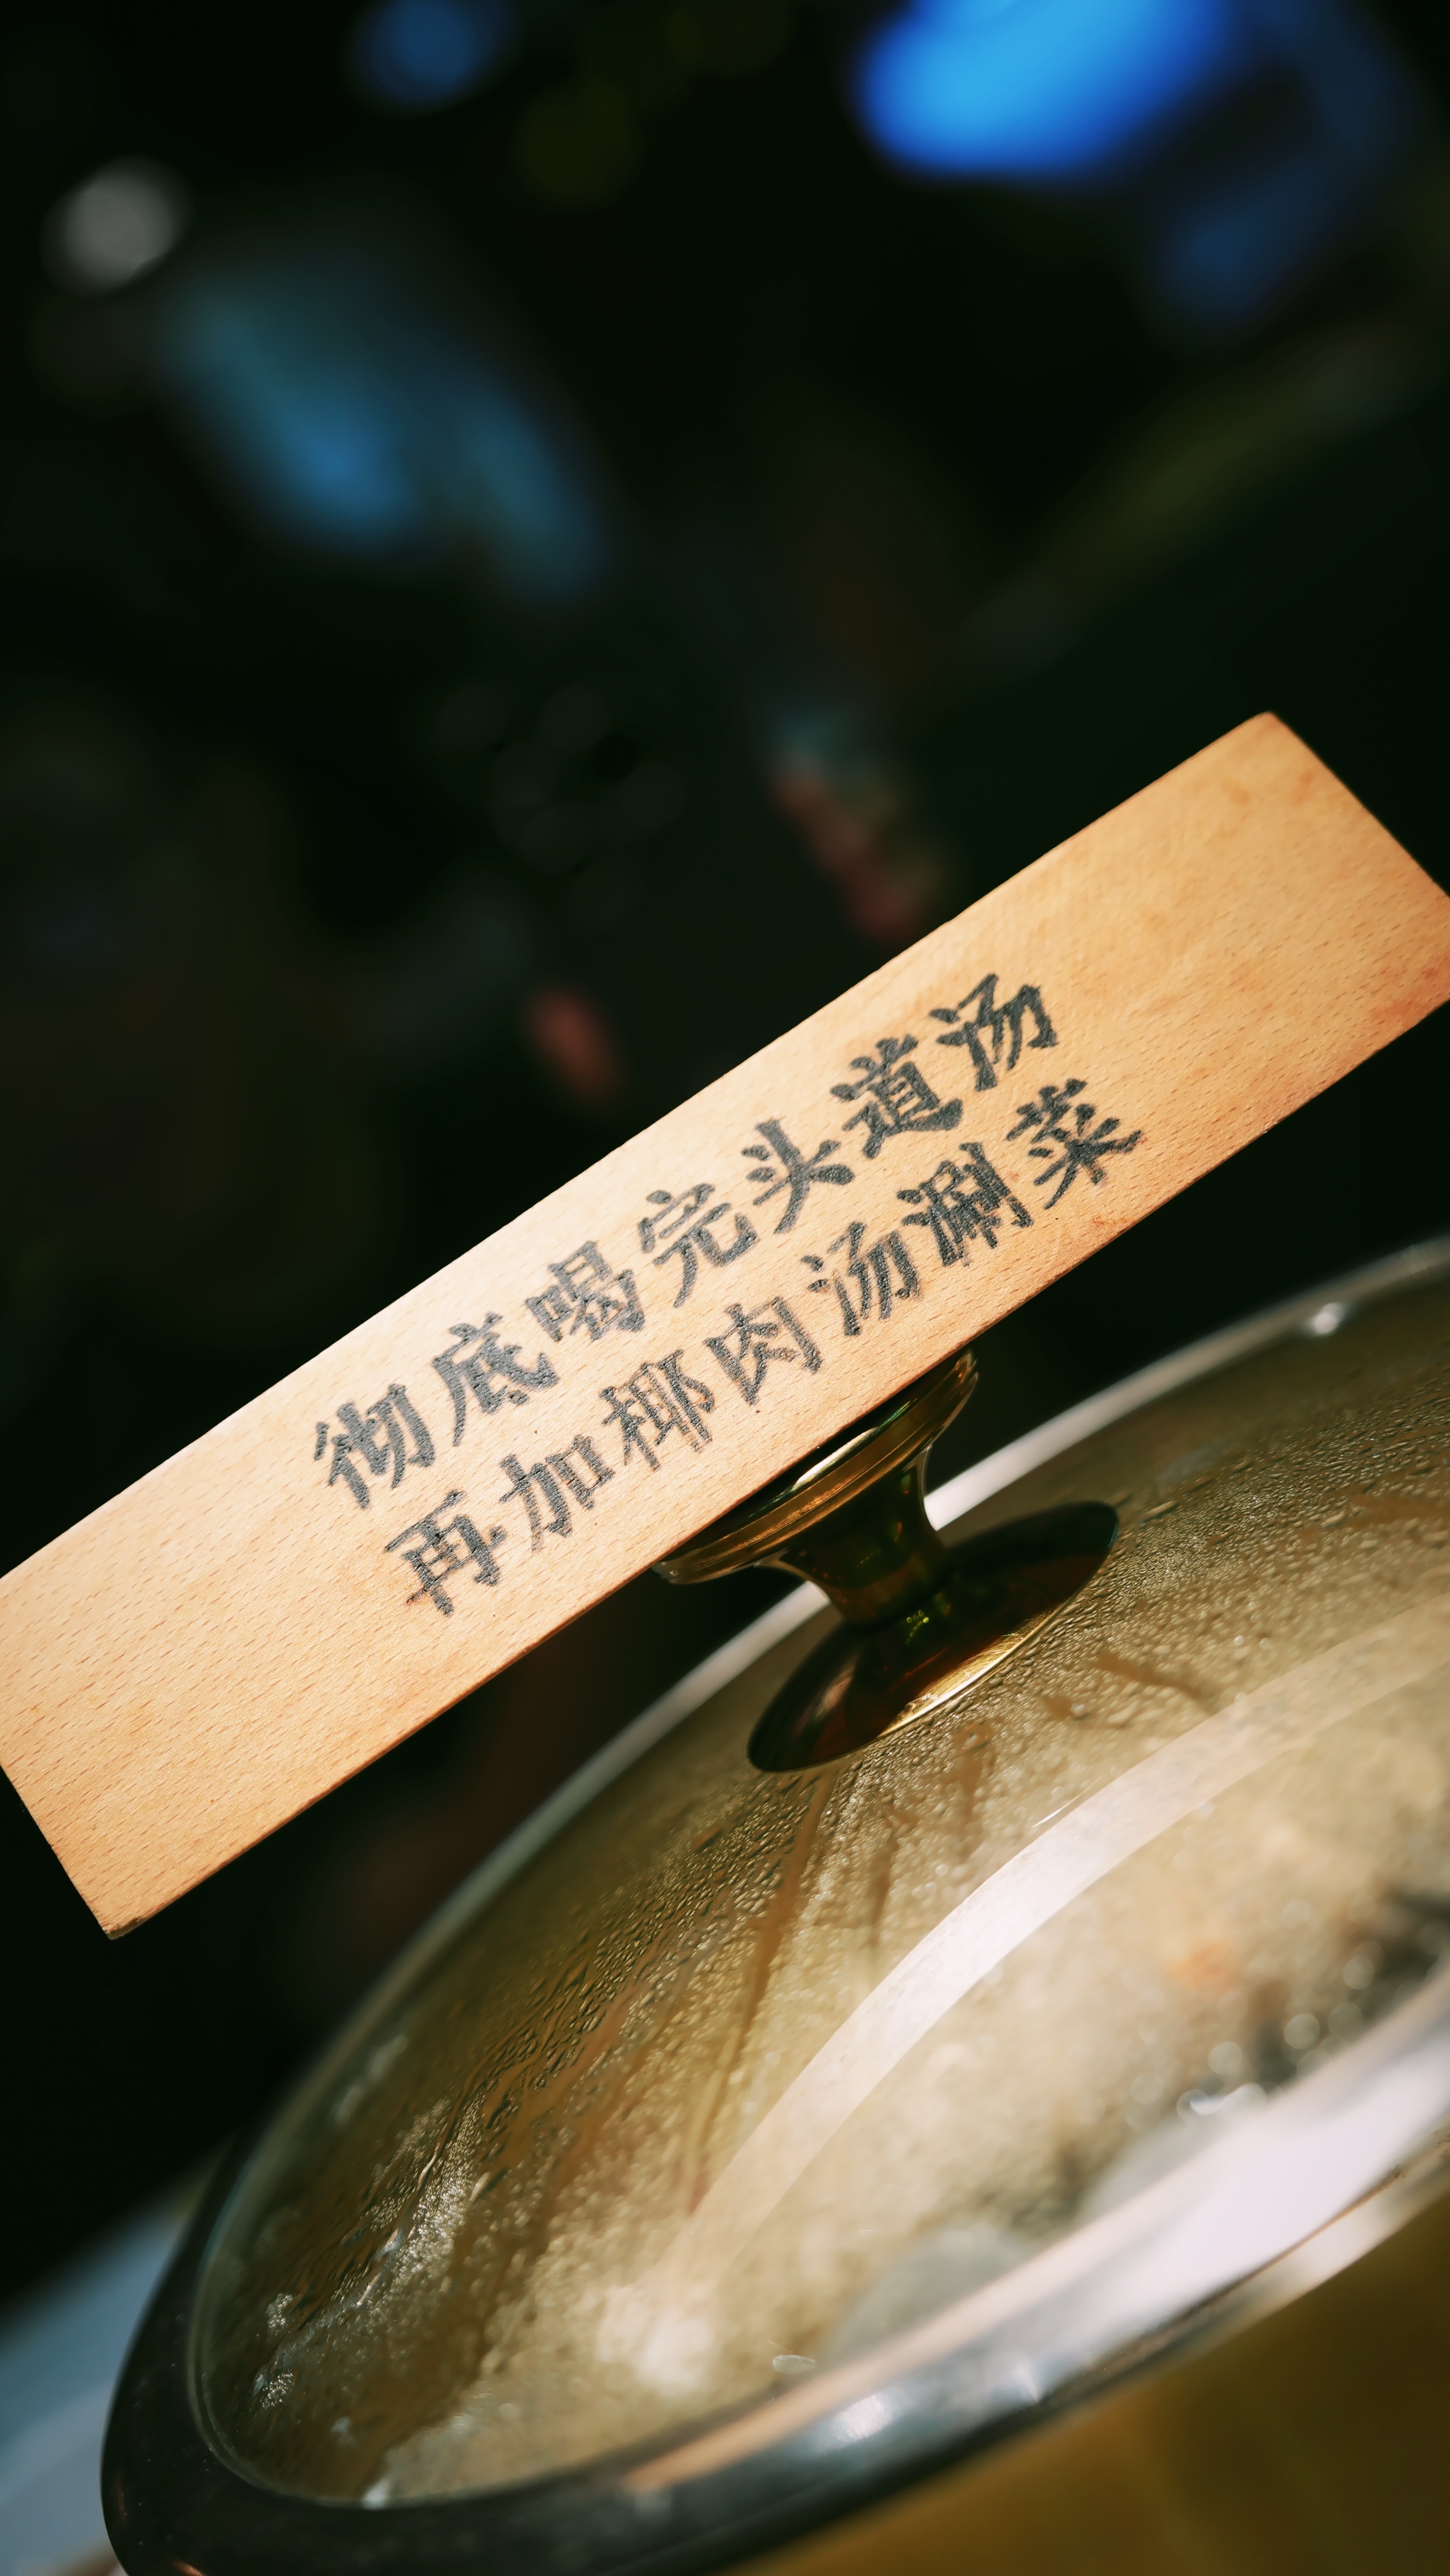 彻底喝完头道汤
再加椰肉汤涮菜